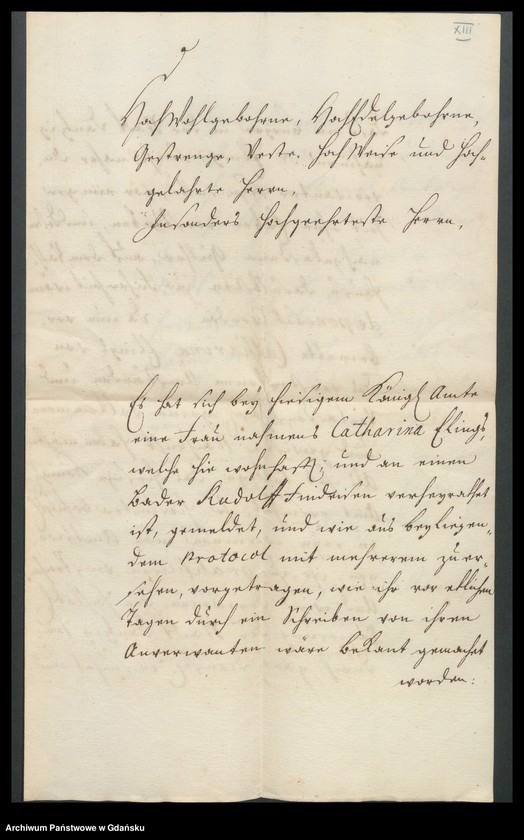 XIII
HochWohlgebohrne, HochEdelgebohrne,
Gestrenge, Veste, HochWeise und Hoch-
gelahrte Herrn,
Insonders Hochgeehrteste Herrn,
Es hat sich bey hiesigem Königl Amte
eine Frau nahmens Catharina Elings,
welche hie wohnhafft, und an einen
Bader Rudolff Findeisen verheyrathet
ist, gemeldet, und wie aus beyliegen-
dem Protocol mit mehrerem zu er-
sehen, vorgetragen, wie ihr vor etlichen
Tagen durch ein Schreiben von ihren
Anverwanten wäre bekant gemachet
worden:
Archiwum Państwowe w Gdańsku